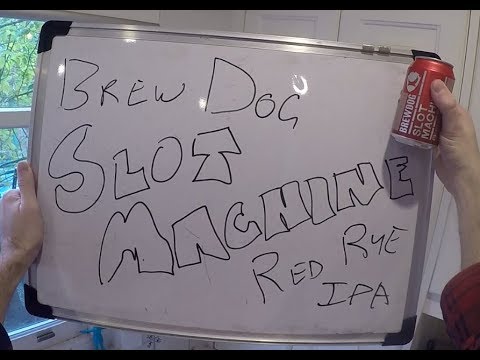 BREW DOG
SLOT
MACHINE
RED RYE
IPA
BREWDOG
SLOT
MACHI